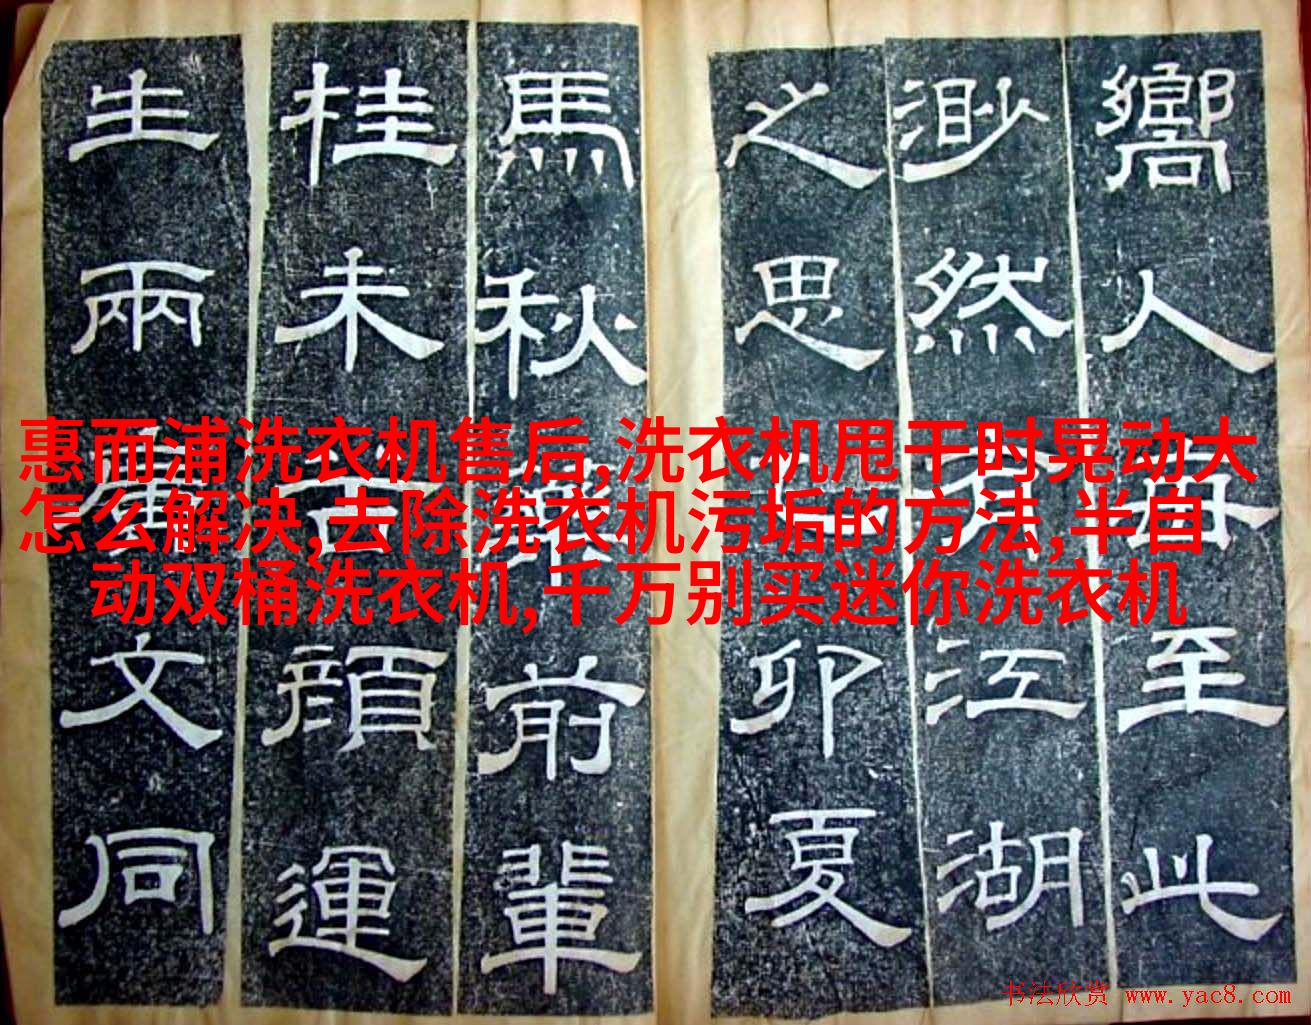 嚮人每至此
渺然有江湖
之思卯夏
馬秋前輩
桂未谷顔運
生兩文同
惠而浦洗衣机售后,洗衣机甩干时晃动大
怎么解决,去除洗衣机污垢的方法,半自
动双桶洗衣机,千万别买迷你洗衣机
书法欣赏 www.yac8.com